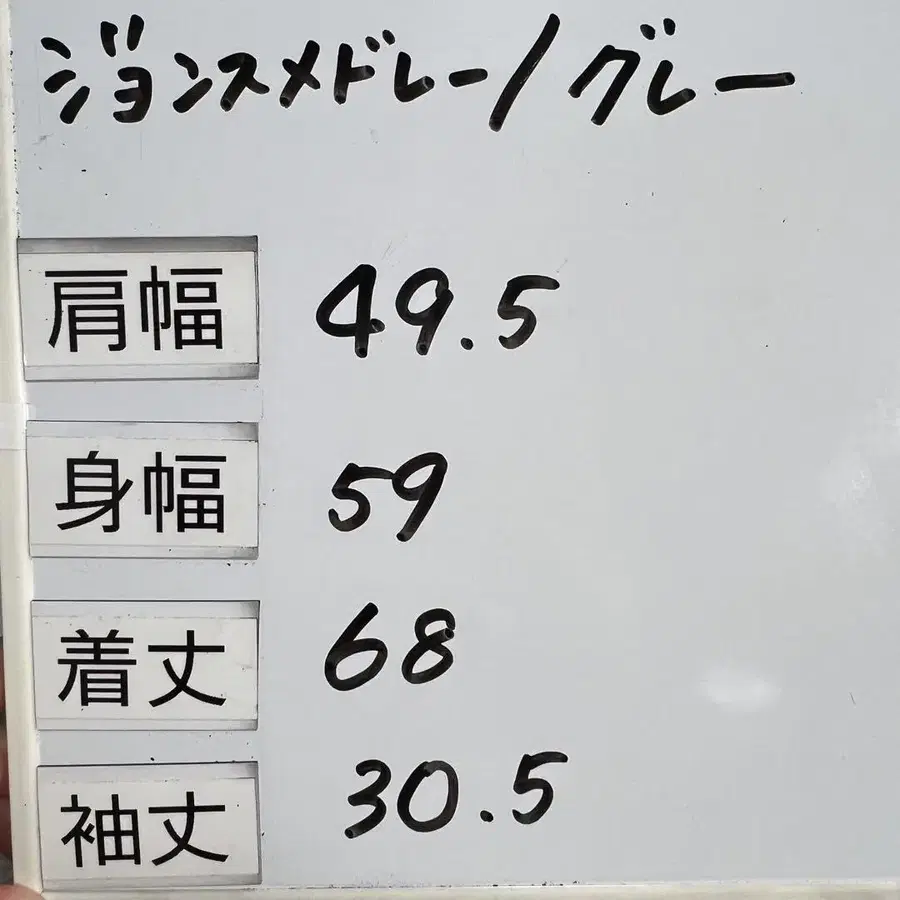 ジョンスメドレー/グレー
肩幅 49.5
身幅 59
着丈 68
袖丈 30.5